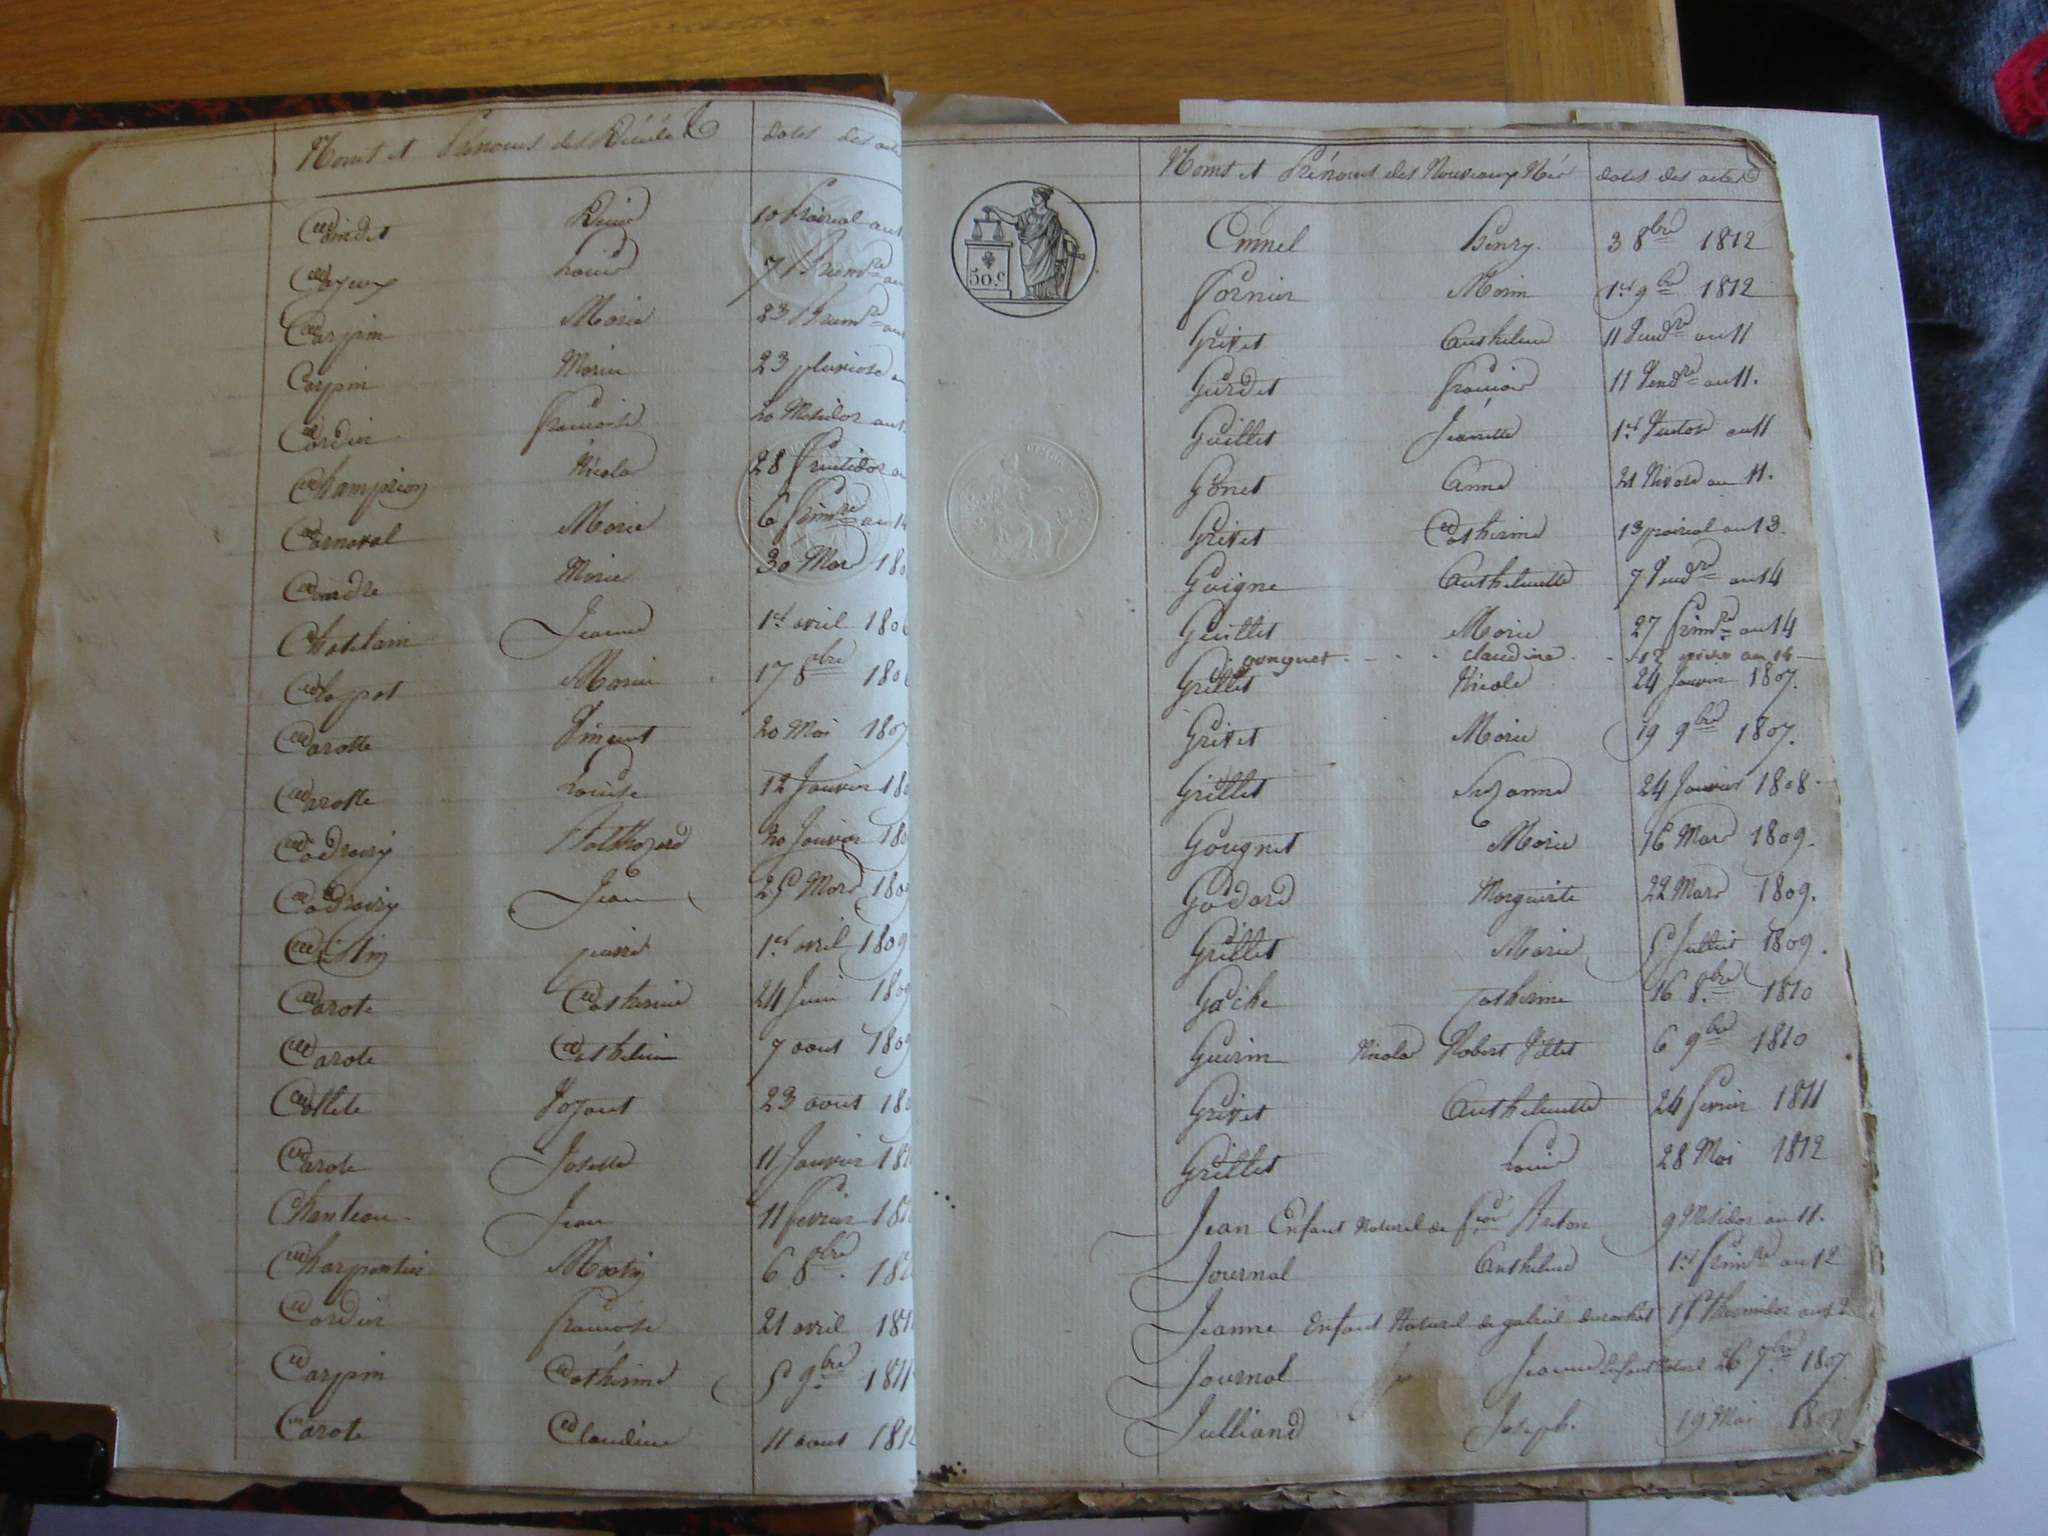 Noms et Prénoms des Décédé dates des acte
Coindet Reine 10 Prairial an
Cayeux Louis 7 Brum.re an
Carpin Marie 23 Brum.re an
Carpin Marie 23 pluviose an
Cordier françoise 20 Messidor an
Champion Nicolas 28 Fructidor an
Carnaval Marie 6 frim.re an 14
Coindre Marie 30 Mars 180
Chatelain Jeanne 1er avril 180
Clapot Marie 17 8bre 180
Carotte Vincent 20 Mai 1807
Carotte Louise 12 Janvier 180
Balthazard 20 Janvier 180
Jean 25 Mars 180
pierre 1er avril 1809
Carote Catherine 24 Juin 1809
Carote 7 aout 1809
Collete 23 aout 180
Carote Josette 11 Janvier 181
Chanteau Jean 11 fevrier 181
Charpentier Martin 6 8bre 181
Cordier françoise 21 avril 181
Carpin Catherine 5 9bre 1811
Carote Claudine 11 aout 181
Noms et Prénoms des Nouveaux Né dates des actes
50.c
Henry. 3 8bre 1812
Fornier Marin 1er 9bre 1812
Grivet Anthelme 11 Vend.re an 11
Gurdet François 11 Vend.re an 11.
Guillet Jeannette 1er Ventose an 11
Gonet Anne 21 Nivose an 11.
Grivet Catherine 13 prairial an 13.
Guigne Anthelmette 7 Vend.re an 14
Guillet Marie 27 frim.re an 14
gonguet claudine 12 nivose an 14
Grillet Nicole 24 Janvier 1807.
Grivet Marie 19 9bre 1807.
Grillet Suzanne 24 Janvier 1808
Gougnet Marie 16 Mars 1809.
Godard Marguerite 22 Mars 1809.
Grillet Marie 5 Juillet 1809.
Gache Catherine 16 8bre 1810
Guerin Nicolas Robert Villet 6 9bre 1810
Grivet Anthelmette 24 fevrier 1811
Grillet Louis 28 Mai 1812
Jean Enfant Naturel de 9 Messidor an 11.
Journal Anthelme 1er frim.re an 12
Jeanne Enfant Naturel de gabriel 15 thermidor an 12
Journal Jeanne Enfant naturel 26 7bre 1807
Julliand Joseph. 19 Mai